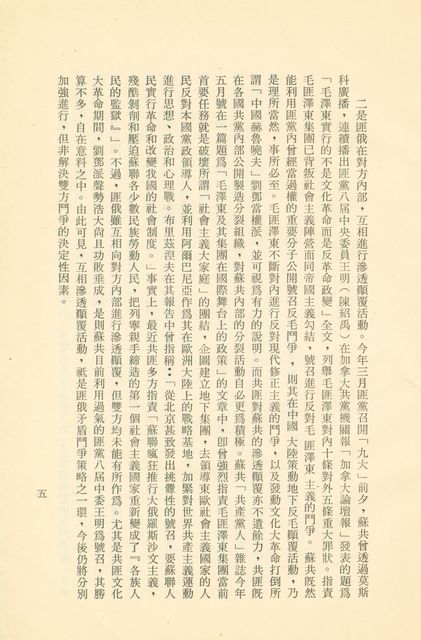 二是匪俄在對方內部，互相進行滲透顚覆活動。今年三月匪黨召開「九大」前夕，蘇共曾透過莫斯
科廣播，連續播出匪黨八屆中央委員王明（陳紹禹）在加拿大共黨機關報「加拿大論壇報」發表的題爲
「毛澤東實行的不是文化革命而是反革命政變」全文，列舉毛匪澤東對內十條對外五條重大罪狀。指責
毛匪澤東集團已背叛社會主義陣營而同帝國主義勾結，號召進行反對毛匪澤東主義的鬥爭。蘇共旣然
能利用匪黨內曾經當過權的重要分子公開號召反毛鬥爭，則其在中國大陸策動地下反毛顚覆活動，乃
是理所當然，事所必至。毛匪澤東不斷對內進行反對現代修正主義的鬥爭，以及發動文化大革命打倒所
謂「中國赫魯曉夫」劉鄧當權派，並可視爲有力的說明。而共匪對蘇共的滲透顚覆亦不遺餘力，共匪旣
在各國共黨內部公開製造分裂組織，對蘇共內部的分裂活動自必更爲積極。蘇共「共產黨人」雜誌今年
五月號在一篇題爲「毛澤東及其集團在國際舞台上的政策」的文章中，卽曾強烈指責毛匪澤東集團當前
首要任務就是破壞所謂「社會主義大家庭」的團結，企圖建立地下集團，去領導東歐社會主義國家的人
民反對本國黨政領導人，並利用阿爾巴尼亞作爲其在歐洲大陸上的戰略基地，加緊對世界共產主義運動
進行思想、政治和心理戰。布里茲湼夫在其報告中曾指稱：「從北京甚致發出挑釁性的號召，要蘇聯人
民實行革命和改變我國的社會制度。」事實上，最近共匪多方指責「蘇聯瘋狂推行大俄羅斯沙文主義，
殘酷剝削和壓迫蘇聯各少數民族勞動人民，把列寧親手締造的第一個社會主義國家重新變成了『各族人
民的監獄』」。不過，匪俄雖互相向對方內部進行滲透顚覆，但雙方均未能有所作爲。尤其是共匪文化
大革命期間，劉鄧派聲勢浩大尙且功敗垂成，是則蘇共目前利用過氣的匪黨八屆中委王明爲號召，其勝
算不多，自在意料之中。由此可見，互相滲透顚覆活動，祇是匪俄矛盾鬥爭策略之一環，今後仍將分別
加強進行，但非解決雙方鬥爭的決定性因素。
五